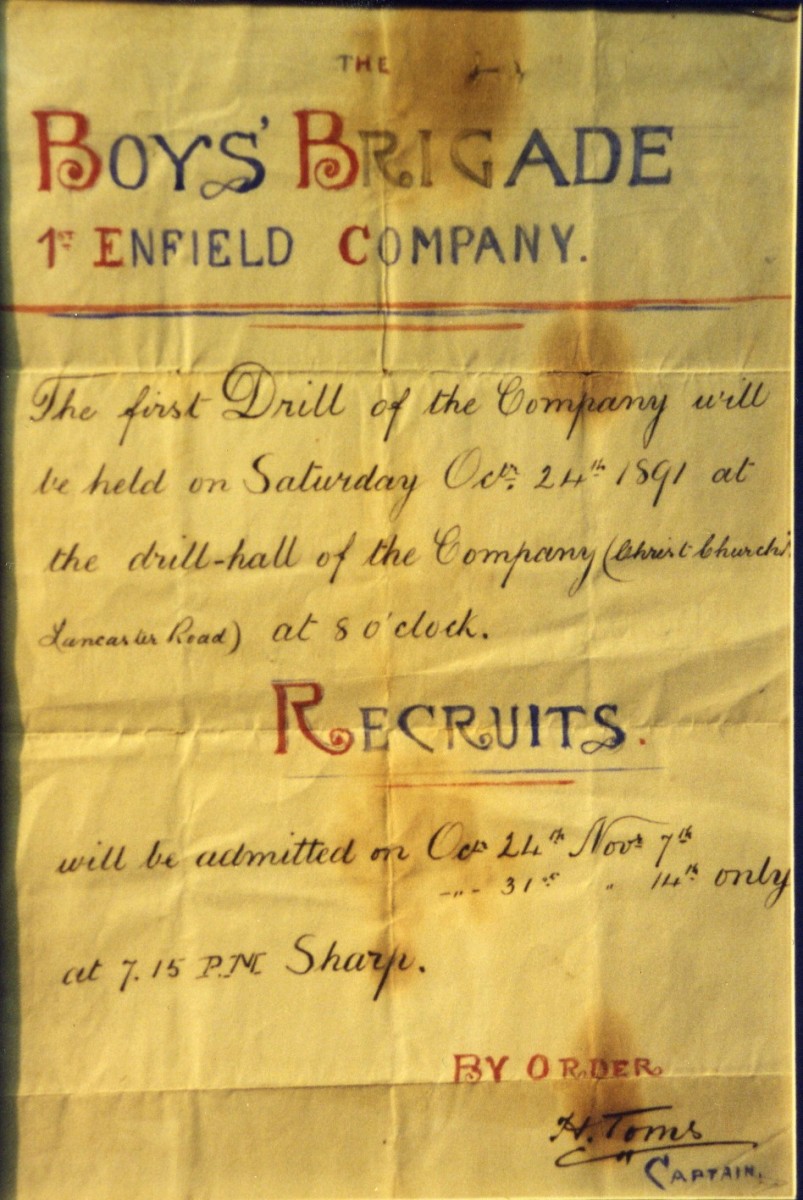 THE
BOYS' BRIGADE
1ST ENFIELD COMPANY.
The first Drill of the Company will
be held on Saturday Octr. 24th 1891 at
the drill-hall of the Company (Christ Church,
Lancaster Road) at 8 o'clock.
RECRUITS.
will be admitted on Oct. 24th Novr. 7th
-"- 31st " 14th only
at 7.15 P.M. Sharp.
BY ORDER
H. Toms
CAPTAIN.